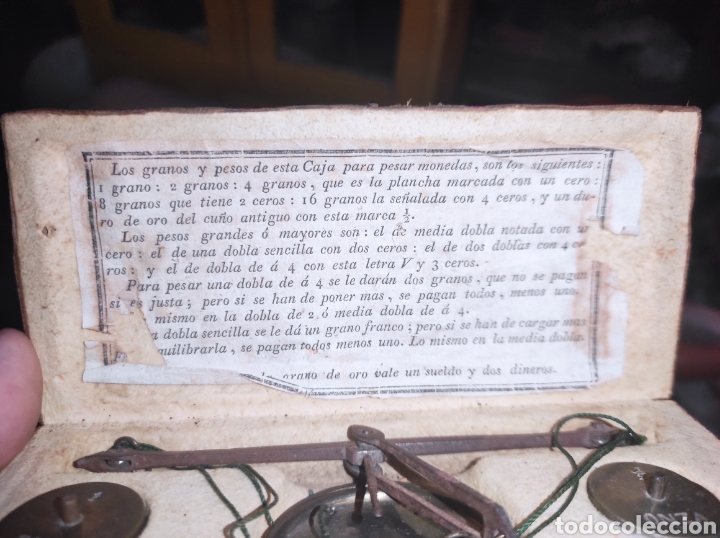 Los granos y pesos de esta Caja para pesar monedas, son los siguientes:
1 grano: 2 granos: 4 granos, que es la plancha marcada con un cero:
8 granos que tiene 2 ceros: 16 granos la señalada con 4 ceros, y un du-
ro de oro del cuño antiguo con esta marca ½.
Los pesos grandes ó mayores son: el de media dobla notada con un
cero: el de una dobla sencilla con dos ceros: el de dos doblas con 4 ce-
ros: y el de dobla de á 4 con esta letra V y 3 ceros.
Para pesar una dobla de á 4 se le darán dos granos, que no se pagan
si es justa; pero si se han de poner mas, se pagan todos, menos uno.
mismo en la dobla de 2 ó media dobla de á 4.
dobla sencilla se le dá un grano franco; pero si se han de cargar mas
se pagan todos menos uno. Lo mismo en la media dobla.
grano de oro vale un sueldo y dos dineros.
todocoleccion
todocoleccion.net